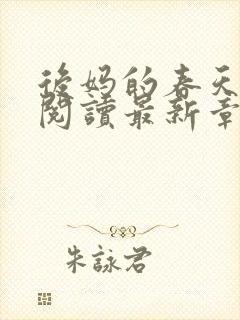 後妈的春天
閱讀最新章
朱詠君